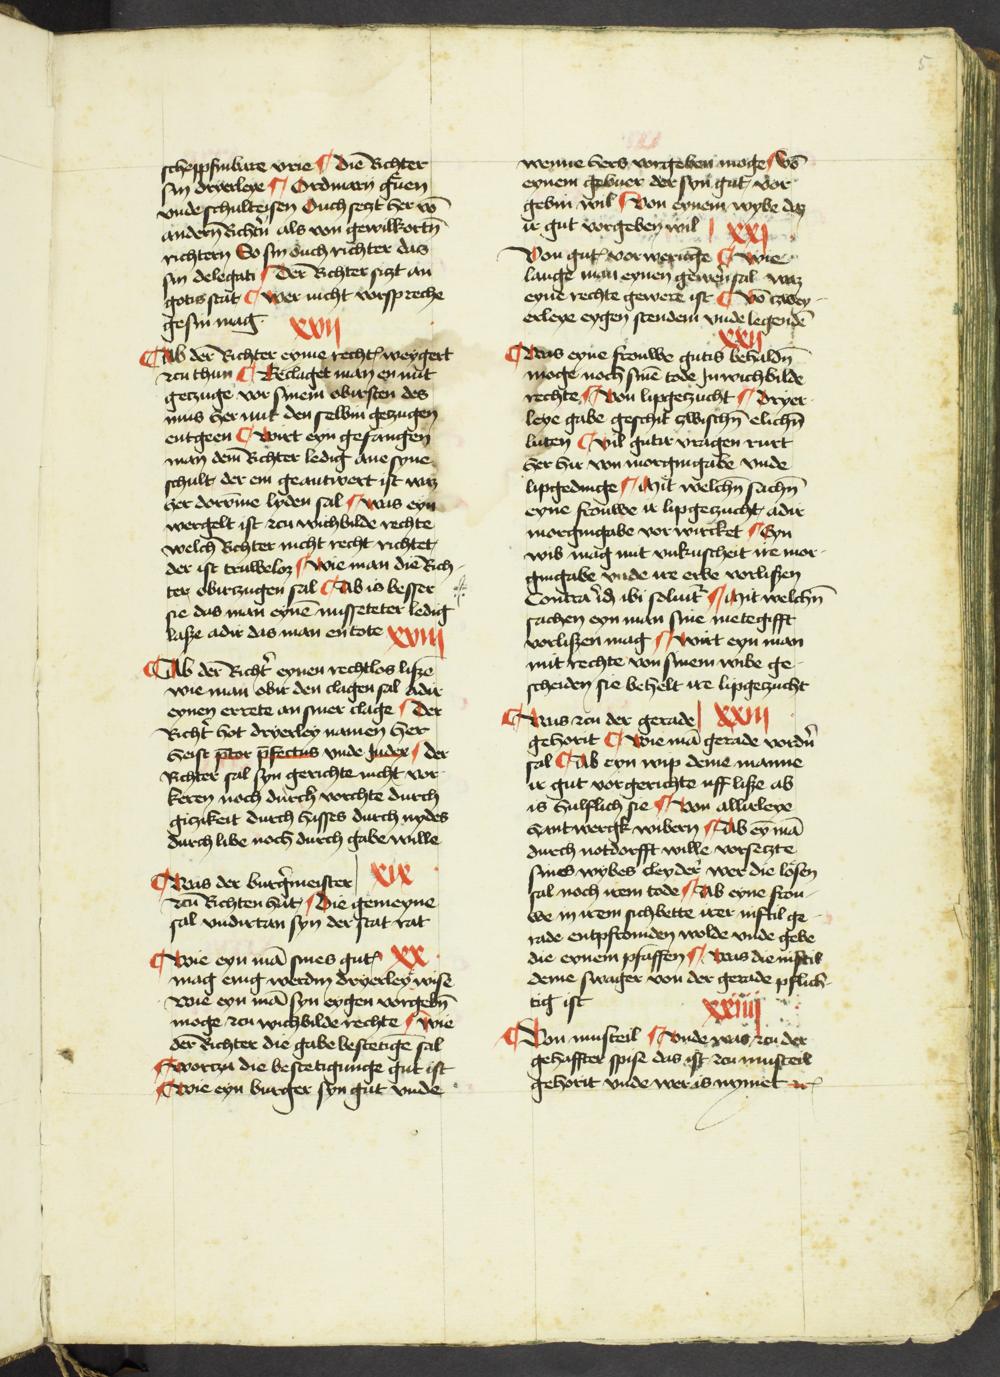 5
scheppfinbare vrie ¶ Die Richter
sin dryerleye ¶ Ordinarij g̃uen
vnde schulteisen Ouch seczt her vō
andern Richt̃n als von gewilkortñ
richtern So sin ouch richter das
sin delegati ¶ Der Richter siczt an
gotis stat ¶ Wer nicht vorspreche
gesin mag xvij
¶ Ab der Richter eyme recht weygert
zcu thun ¶ Beclaget man en mit
geczuge vor sinem obirsten des
mus her mit den selbin gezugen
entgeen ¶ Wirt eyn gefangen
man dem Richter ledig ane syne
schult der em geantwert ist waz
her dorvme lyden sal ¶ Was eyn
wergelt ist zcu wichbilde rechte
welch Richter nicht recht richtet
der ist truweloz ¶ Wie man die Rich-
ter obirzugen sal ¶ Ab is besser
sie das man eynē misseteter ledig
lasze adir das man en tote xviij
¶ Ab der Richt̃ eynen rechtlos lisze
wie man obir den clagen sal adir
eynen errete an siner clage ¶ Der
Richt̃ hot dryerley namen Her
heist p̄tor p̄fectus vnde Judex ¶ der
Richter sal syn gerichte nicht vor
keren noch durch vorchte durch
gizikeit durch hasses durch nydes
durch libe noch durch gabe wille
¶ Was der burg̃meister xix
zcu Richten hat ¶ Die gemeyne
sal vndirtan syn der stat rat
¶ Wie eyn mā sines gut xx
mag enig werdin dryerley wise
Wie eyn mā syn eygen vorgebñ
moge zcu wichbilde rechte ¶ Wie
der Richter die gabe bestetigē sal
¶ Worczu die bestetigunge gut ist
¶ Wie eyn burger syn gut vnde
wenne hers vorgeben moge ¶ Vō
eynem gebuer der syn gut vor
gebin wil ¶ Von eynem wybe daz
ir gut vorgeben wil xxj
Von gut vorweringe ¶ Wie
lange man eynen gewern sal waz
eyne rechte gewere ist ¶ Vō czwey-
erleye eygen stendem vnde legendē
xxij
¶ Was eyne frouwe gutis behaldñ
moge noch sinē tode In wichbilde
rechte ¶ Von lipgeczucht ¶ Dryer-
leye gabe geschit zwischñ elichñ
luten ¶ Vil gutir vragen rurt
her hir von morgingabe vnde
lipgedinge ¶ Mit welchñ sachñ
eyne frouwe ir lipgeczucht adir
morgingabe vorwircket ¶ Eyn
wib mag mit vnkuscheit ire mor-
gingabe vnde ire erbe vorlisen
Contra id ibi soluit̃ ¶ Mit welchñ
sachen eyn man sine metegifft
vorlisen mag ¶ Wirt eyn man
mit rechte von sinem wibe ge-
scheiden sie behelt ire lipgeczucht
¶ Was zcu der gerade xxiij
gehorit ¶ Wie mā gerade vordñ
sal ¶ Ab eyn wip deme manne
ir gut vor gerichte uff lisze ab
is hulflich sie ¶ Von allirleye
hantwergk wibern ¶ Ab ey mā
durch notdorfft wille vorseczte
sines wybes cleyder wer die losen
sal noch irem tode ¶ Ab eyne frou-
we in irem sichbette irer niftil ge-
rade entpfromden wolde vnde gebe
die eynem pfaffen ¶ Was die niftil
deme swager von der gerade pflich-
tig ist xxiiij
¶ Von musteil ¶ Vnde was zcu der
gehaffter spise das ist zcu musteil
gehorit vnde wer is nymet